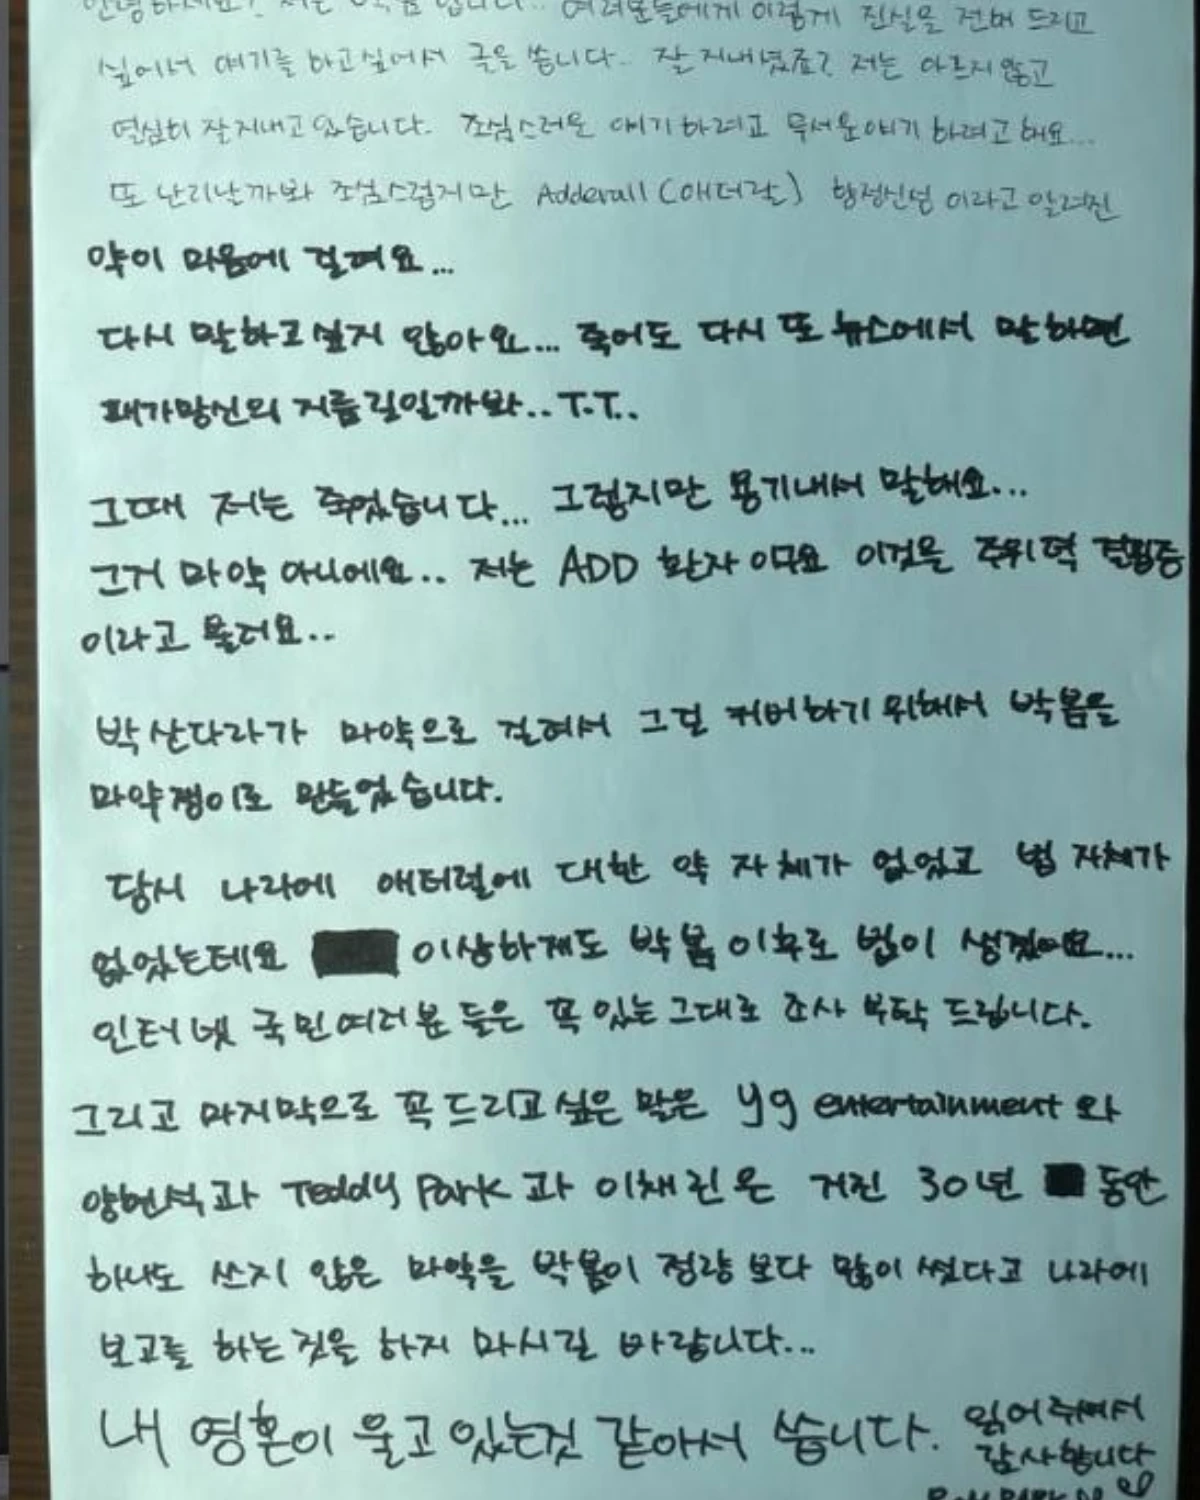 안녕하세요? 저는 박봄 입니다.. 여러분들에게 이렇게 진실을 전해 드리고
싶어서 얘기를 하고싶어서 글을 씁니다.. 잘 지내셨죠? 저는 아프지않고
열심히 잘지내고 있습니다. 조심스러운 얘기하려고 무서운얘기 하려고해요...
또 난리날까봐 조심스럽지만 Adderall (애더랄) 향정신성 이라고 알려진
약이 마음에 걸려요...
다시 말하고싶지 않아요... 죽어도 다시 또 뉴스에서 말하면
패가망신의 지름길일까봐.. T.T..
그때 저는 죽었습니다... 그렇지만 용기내서 말해요...
그거 마약 아니에요.. 저는 ADD 환자이구요 이것을 주위력 결핍증
이라고 불러요..
박산다라가 마약으로 걸려서 그걸 커버하기위해서 박봄을
마약쟁이로 만들었습니다.
당시 나라에 애더럴에 대한 약 자체가 없었고 법 자체가
없었는데요 이상하게도 박봄 이후로 법이 생겼어요...
인터넷 국민여러분들은 꼭 있는그대로 조사 부탁 드립니다.
그리고 마지막으로 꼭 드리고싶은 말은 yg entertainment 와
양현석과 Teddy Park 과 이채린은 거진 30년 동안
하나도 쓰지 않은 마약을 박봄이 정량보다 많이 썼다고 나라에
보고를 하는것을 하지 마시길 바랍니다...
내 영혼이 울고있는것 같아서 씁니다. 읽어주셔서
감사합니다